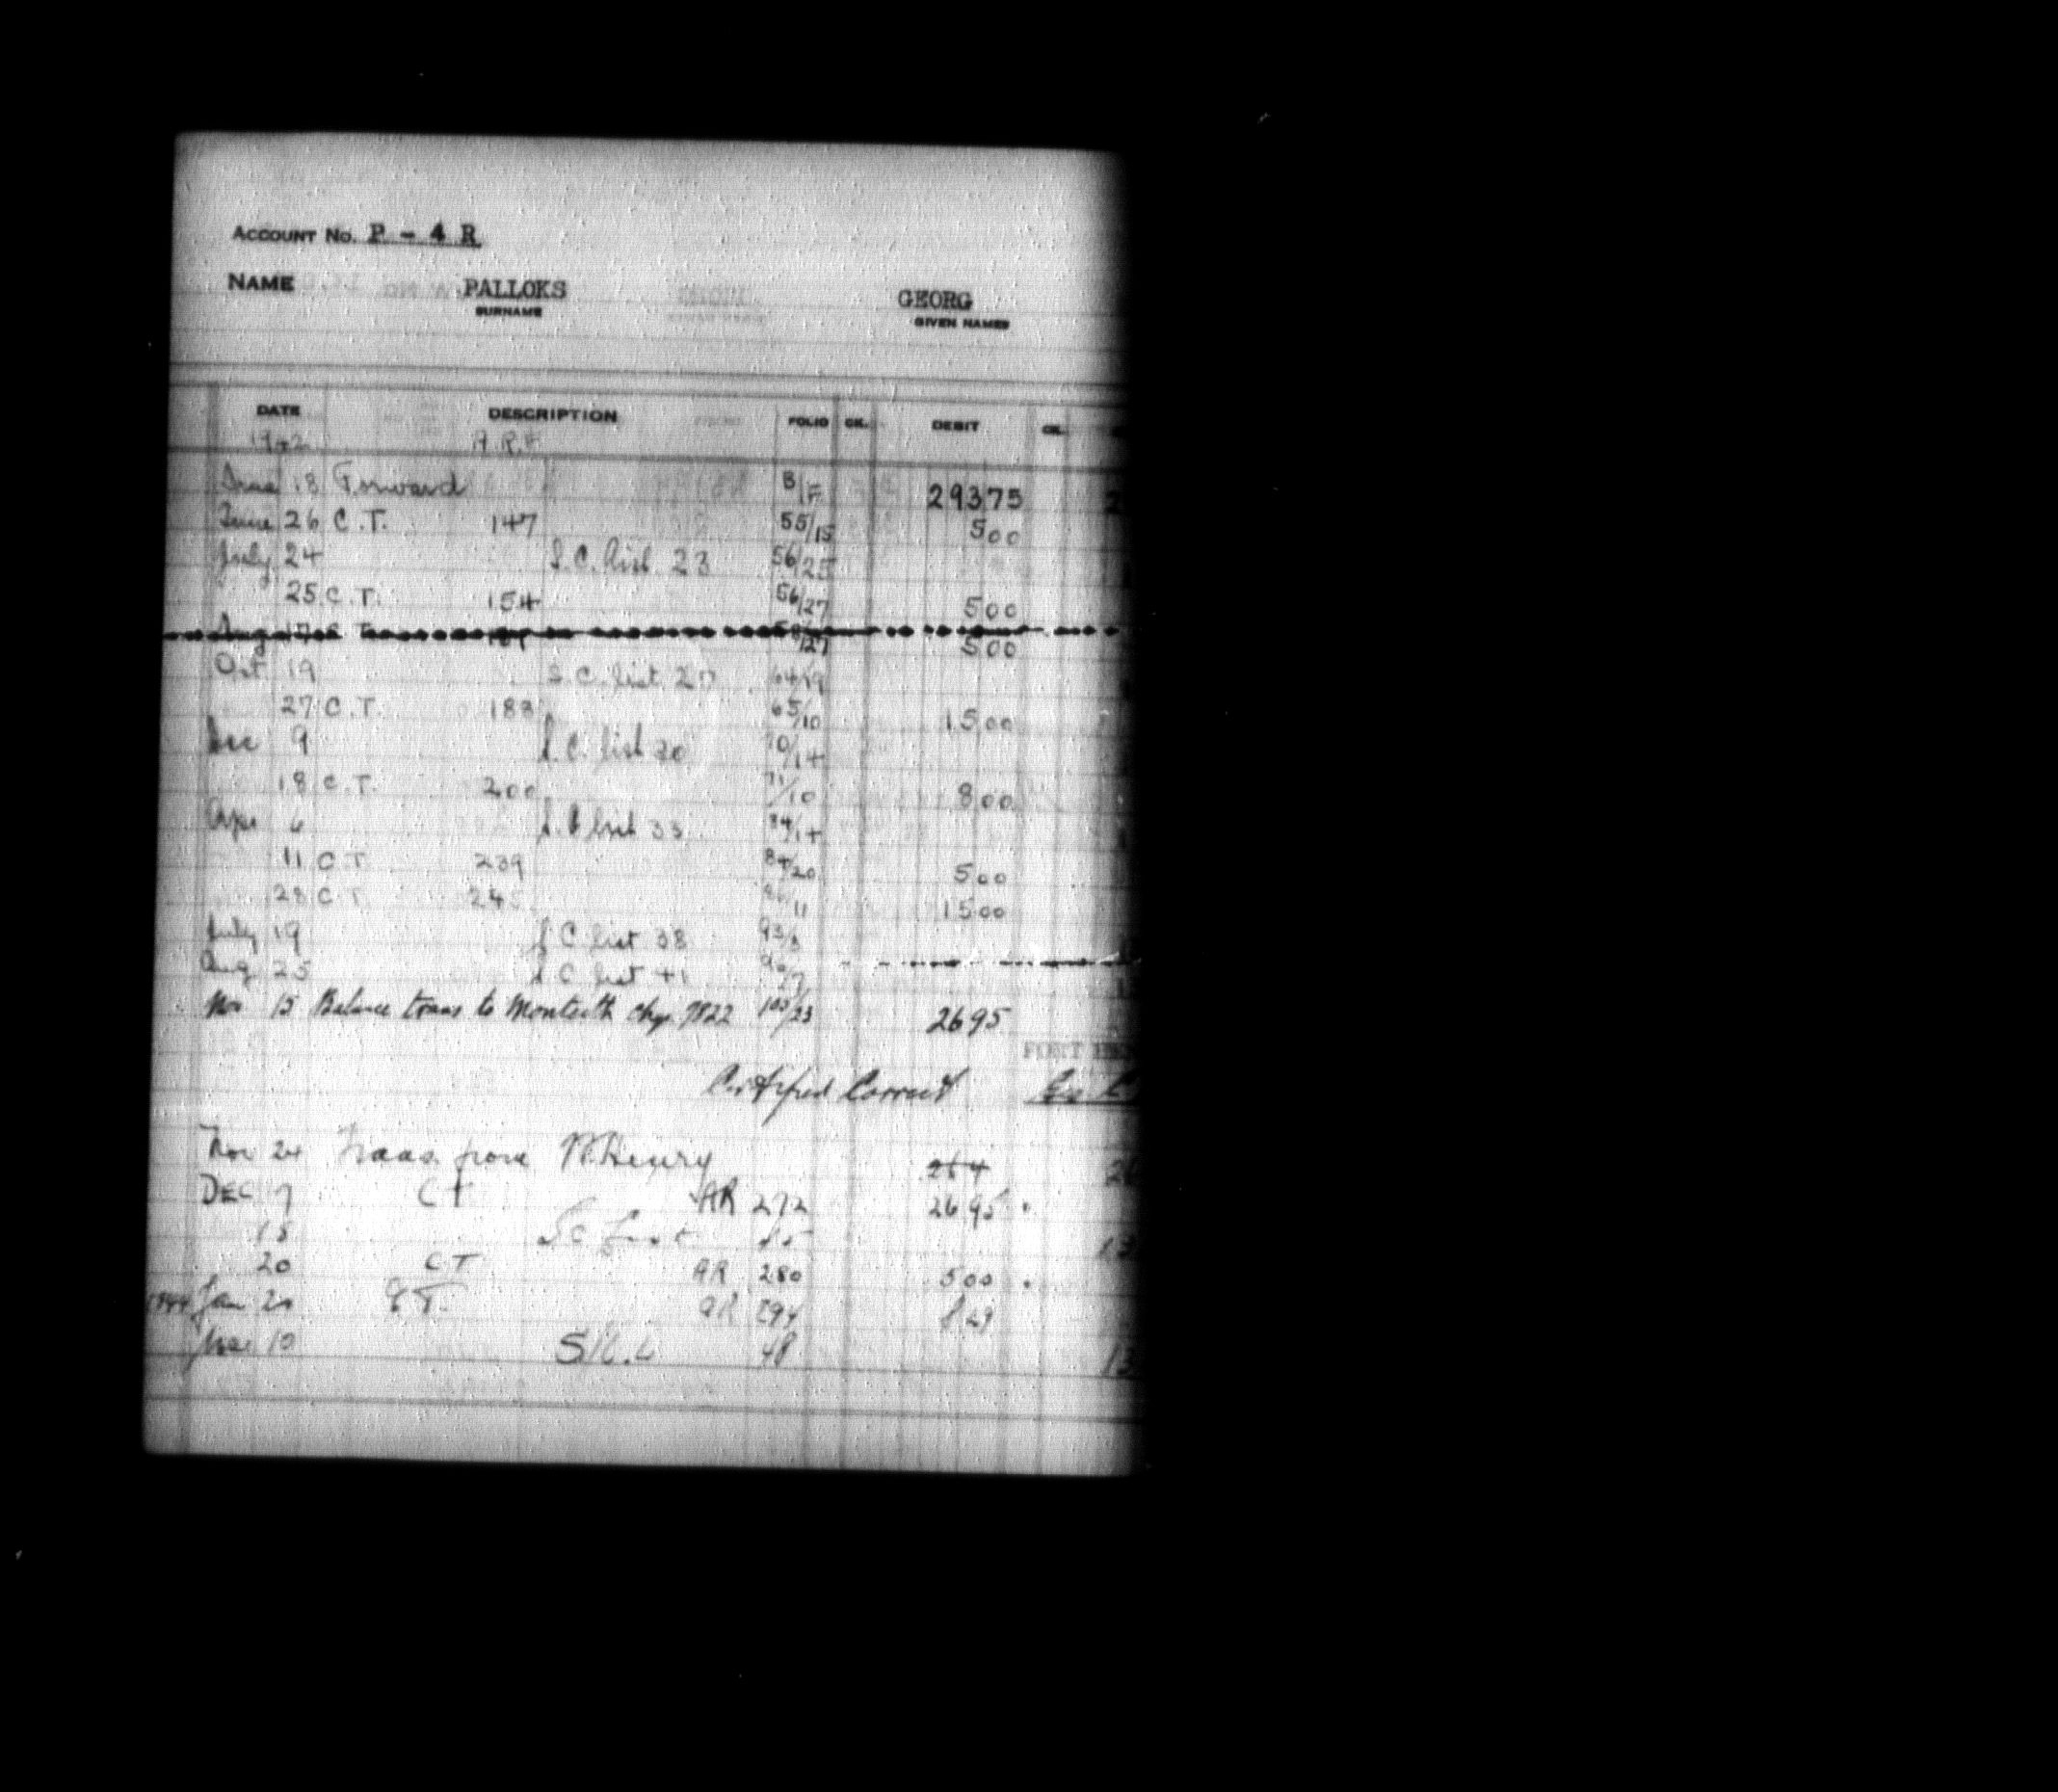 ACCOUNT NO. P - 4 R
NAME PALLOKS GEORG
SURNAME GIVEN NAMES
DATE DESCRIPTION FOLIO CK. DEBIT CK.
1942 A.R.#
June 18 Forward B/F 293 75
June 26 C.T. 147 55/15 5 00
July 24 S.C. list 23 56/25
25 C.T. 154 56/27 5 00
Aug 17 C.T. /27 5 00
Oct 19 S.C. list 64/19
27 C.T. 183 65/10 15 00
Dec 9 S.C. list 30 70/14
18 C.T. 200 71/10 8 00
Apr 6 S.C. list 33 84/14
11 C.T. 239 84/20 5 00
28 C.T. 11 15 00
July 19 S.C. list 38 93/3
Aug 25 S.C. list 41
Nov 15 Balance trans to Monteith chq. 7822 103/23 26 95
FORT HEN
Certified Correct
Nov 24 Trans. from Ft. Henry 26
DEC 7 CT AR 272 26 95
15 SC List
20 CT AR 280 5 00
1944 Jan 20 AR 8 29
Mar 10 48 13